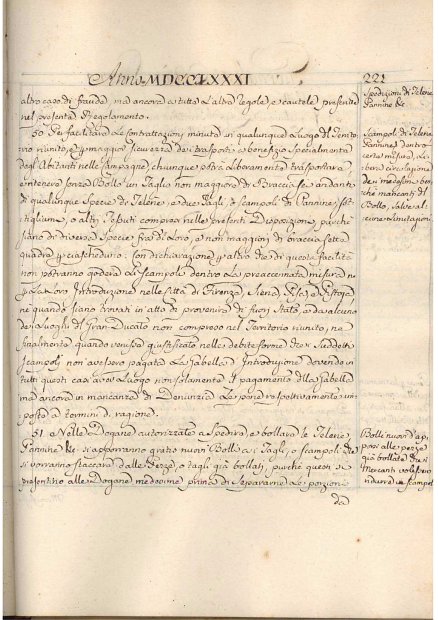 Anno MDCCLXXXI
221
altro caso di fraude, ma ancora a tutte l'altre regole, e cautele prescritte
nel presente Regolamento.
50. Per facilitare le contrattazioni minute in qualunque Luogo del Terri-
torio riunito, e maggior sicurezza dei trasporti a benefizio specialmente
degli Abitanti nelle Campagne, chiunque potrà liberamente trasportare
e ritenere senza Bollo un Taglio non maggiore di Braccia andante
di qualunque Specie di Telerie, e due Tagli, o scampoli di Pannine, set-
tigliumi, o altri Tessuti compresi nelle presenti Disposizioni, purchè
siano di diversa Specie fra di Loro, e non maggiori di braccia sette
quadre per ciascheduno: con dichiarazione per altro che di questa facilità
non potranno godere li scampoli dentro la preaccennata misura nè
per la loro Introduzione nelle Città di Firenze, Siena, Pisa, e Pistoja
ne quando siano trovati in atto di provenire di fuori Stato, o da alcuno
dei Luoghi del Gran-Ducato non compreso nel Territorio riunito, ne
finalmente quando venisse giustificato nelle debite forme che i suddetti
scampoli non avessero pagata la Gabella d'Introduzione dovendo in
tutti questi casi aver Luogo non solamente il pagamento della Gabella
ma ancora in mancanza di Denunzia le pene respettivamente im-
poste a termini di ragione.
51. Nelle Dogane autorizzate a spedire, e bollare le Telerie
Pannine &c. si apporranno gratis nuovi Bolli a' Tagli, o scampoli che
si vorranno staccare dalle Pezze, o tagli già bollati, purchè questi si
presentino alle Dogane medesime prima di separarne le porzioni
da
Spedizioni di Telerie
Pannine &c.
Scampoli di Telerie,
Pannine &c. dentro
certe misure, Li-
bera circolazione
dei medesimi ben-
chè mancanti di
Bollo, salve al-
cune Limitazioni
Bolli nuovi d'ap-
porsi alle pezze
già bollate che i
Mercanti volessero
ridurre in scampoli